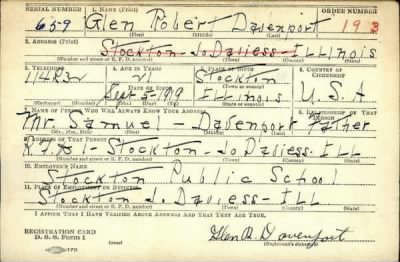 SERIAL NUMBER 1. NAME (Print) ORDER NUMBER
659 Glen Robert Davenport 193
(First) (Middle) (Last)
2. ADDRESS (Print)
Stockton Jo Daviess ILLInois
(Number and street or R. F. D. number) (Town) (County) (State)
3. TELEPHONE 4. AGE IN YEARS 5. PLACE OF BIRTH 6. COUNTRY OF CITIZENSHIP
114R3 21 Stockton
DATE OF BIRTH (Town or county)
Sept 5-1919 ILLInois U.S.A
(Mo.) (Day) (Yr.) (State or country)
7. NAME OF PERSON WHO WILL ALWAYS KNOW YOUR ADDRESS 8. RELATIONSHIP OF THAT PERSON
Mr. Samuel - Davenport Father
(Mr., Mrs., Miss) (First) (Middle) (Last)
9. ADDRESS OF THAT PERSON
R.F.D. 1 - Stockton - Jo Daviess - ILL
(Number and street or R. F. D. number) (Town) (County) (State)
10. EMPLOYER'S NAME
Stockton Public School
11. PLACE OF EMPLOYMENT OR BUSINESS
Stockton J. Daviess - ILL
(Number and street or R. F. D. number) (Town) (County) (State)
I AFFIRM THAT I HAVE VERIFIED ABOVE ANSWERS AND THAT THEY ARE TRUE.
REGISTRATION CARD
D. S. S. Form 1 Glen R. Davenport
(over) (Registrant's signature)